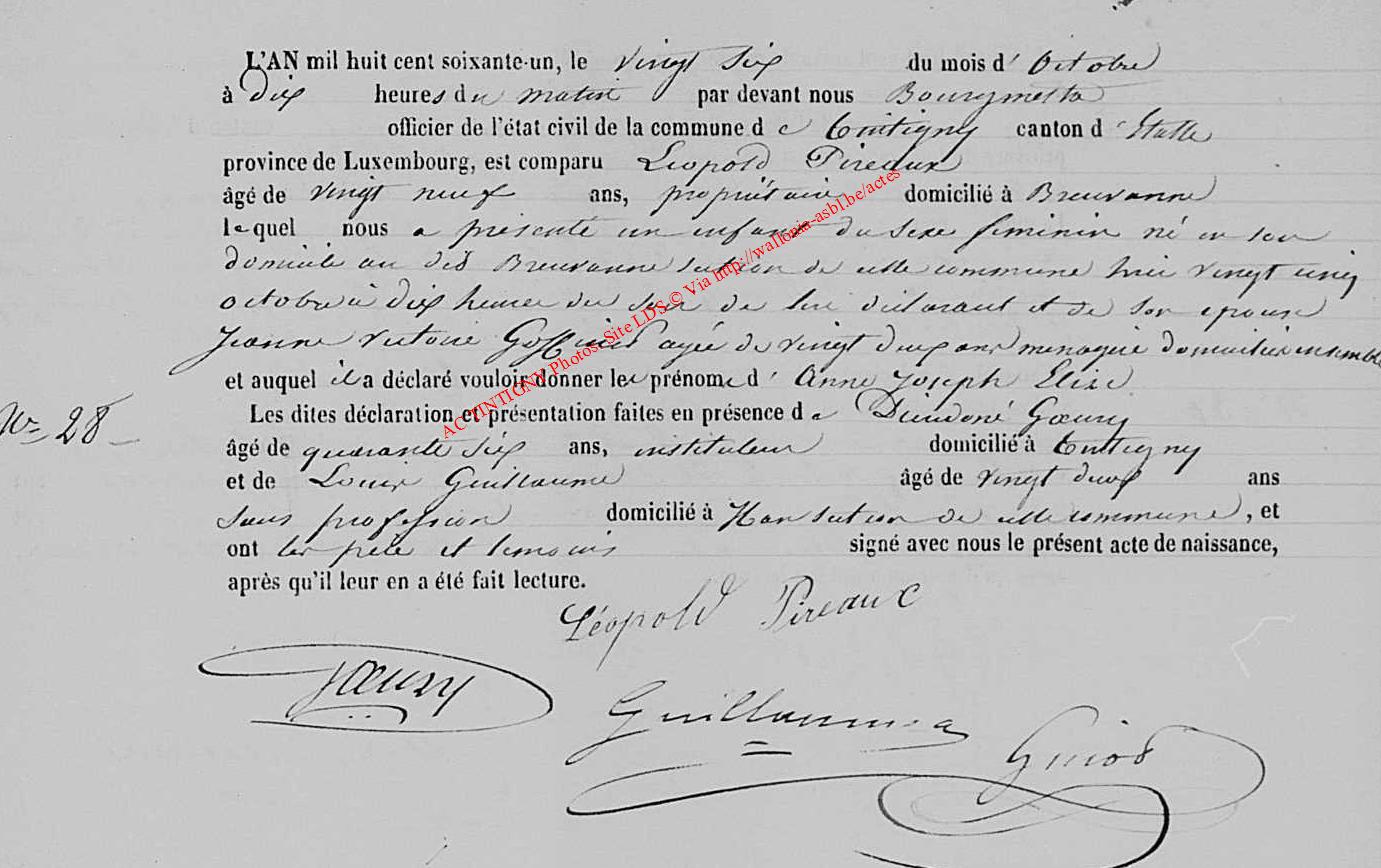 L'AN mil huit cent soixante-un, le vingt six du mois d' octobre
à dix heures du matin par devant nous Bourgmestre
officier de l'état civil de la commune de tintigny canton d' Etalle
province de Luxembourg, est comparu Léopold Pireaux
âgé de vingt neuf ans, propriétaire domicilié à Breuvanne
lequel nous a présenté un enfant du sexe feminin né en son
domicile au dit Breuvanne section de cette commune hier vingt cinq
octobre à dix heures du soir de lui déclarant et de son epouse
Jeanne Victoire Goffinet agée de vingt deux ans menagère domiciliés ensemble
et auquel il a déclaré vouloir donner les prénoms d' Anne Joseph Elise
Les dites déclaration et présentation faites en présence de Dieudoné Goeury
N° 28
âgé de quarante six ans, instituteur domicilié à tintigny
et de Louis Guillaume âgé de vingt deux ans
sans profession domicilié à Han section de cette commune, et
ont les père et temoins signé avec nous le présent acte de naissance,
après qu'il leur en a été fait lecture.
Léopold Pireaux
Goeury
Guillaume
Guiot
ACTINTIGNY Photos: Site LDS © Via http://wallonia-asbl.be/actes